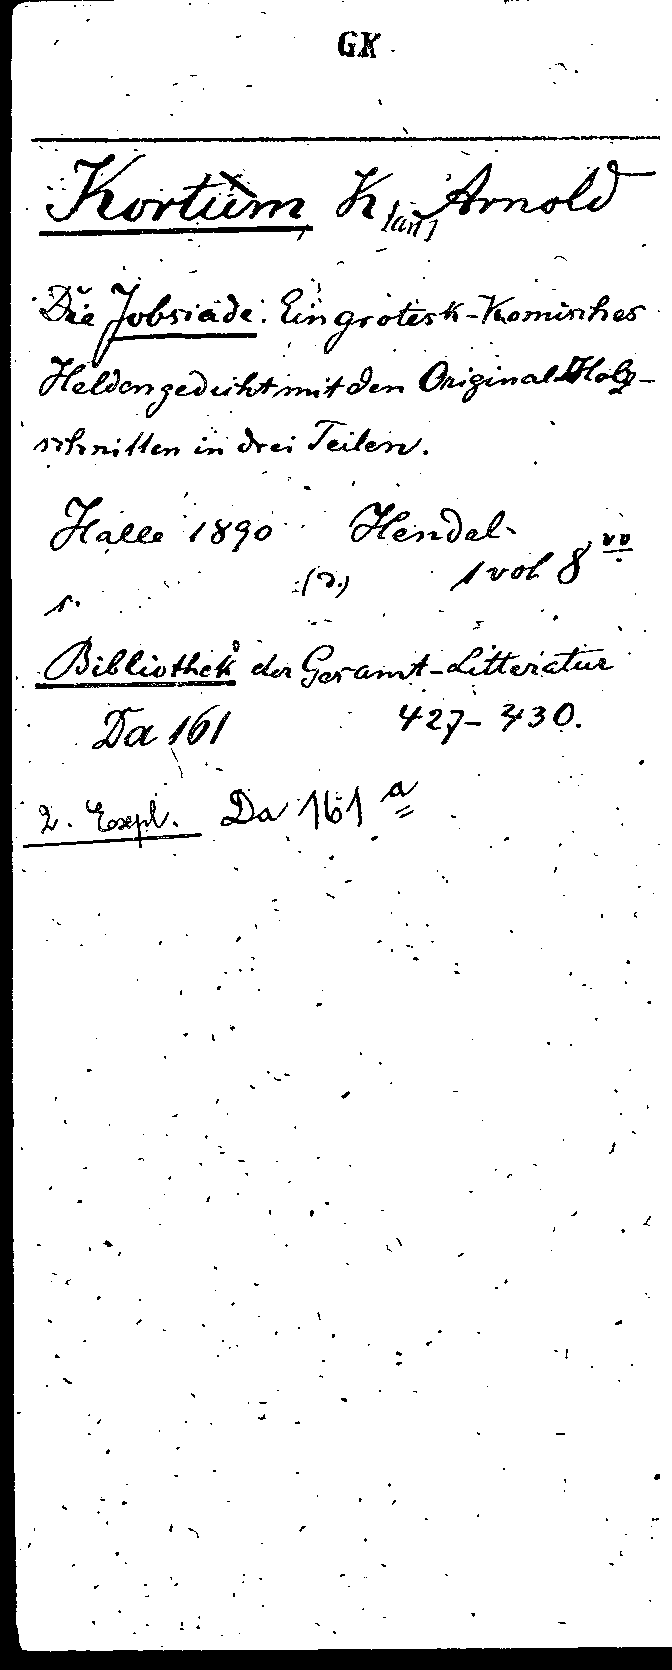 GK
Kortüm, K[arl] Arnold
Die Jobsiade. Ein grotesk-komisches
Heldengedicht mit den Original-Holz-
schnitten in drei Teilen.
Halle 1890 Hendel.
(2.) 1 vol 8vo
Bibliothek der Gesamt-Litteratur
Da 161 427-430.
2. Expl. Da 161 a